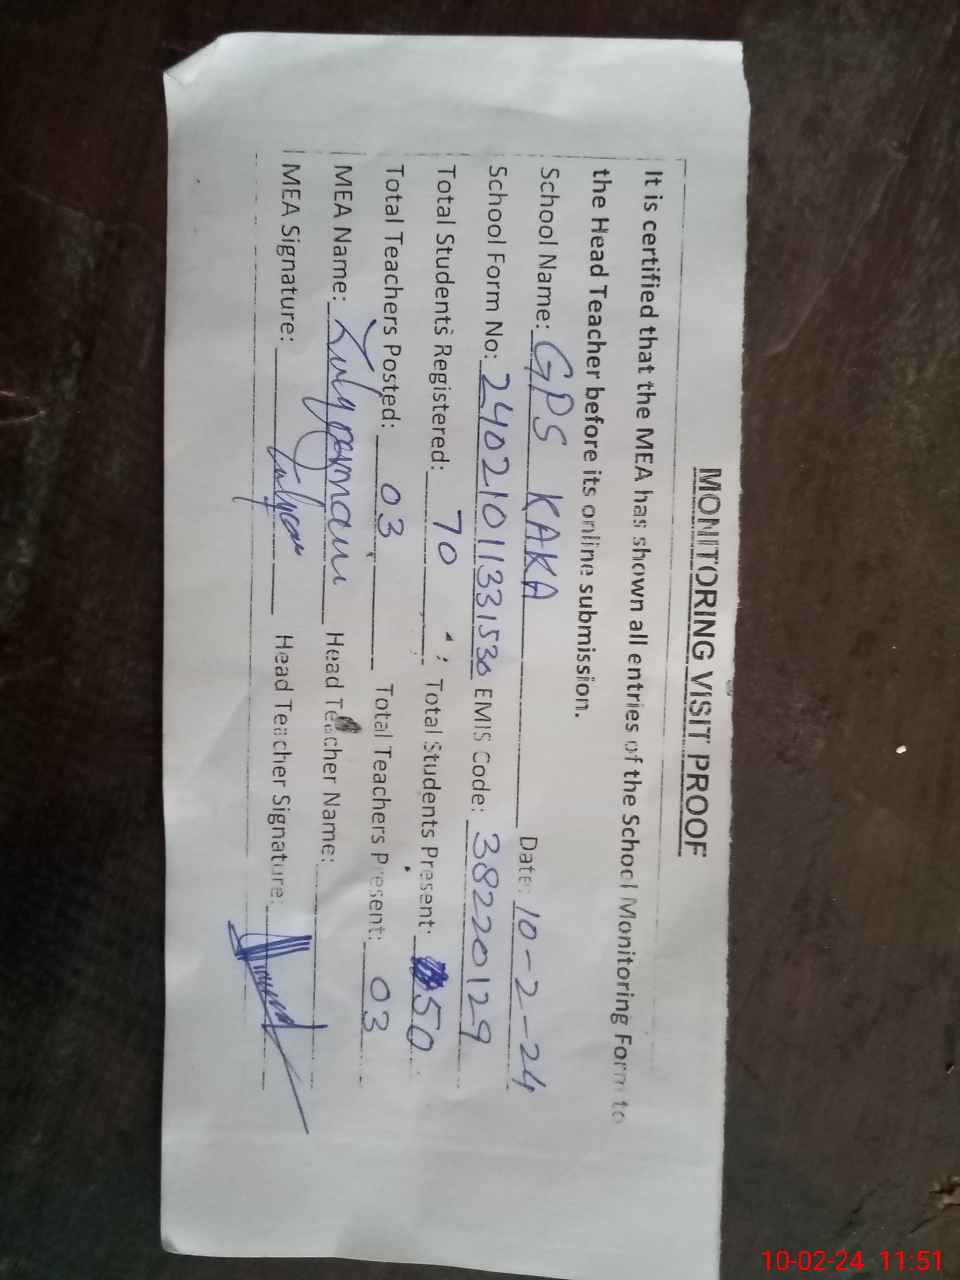 MONITORING VISIT PROOF
It is certified that the MEA has shown all entries of the School Monitoring Form to
the Head Teacher before its online submission.
School Name: GPS KAKA Date: 10-2-24
School Form No: EMIS Code: 38220129
Total Students Registered: 70 Total Students Present: 50
Total Teachers Posted: 03 Total Teachers Present: 03
MEA Name: Head Teacher Name:
MEA Signature: Head Teacher Signature:
10-02-24 11:51